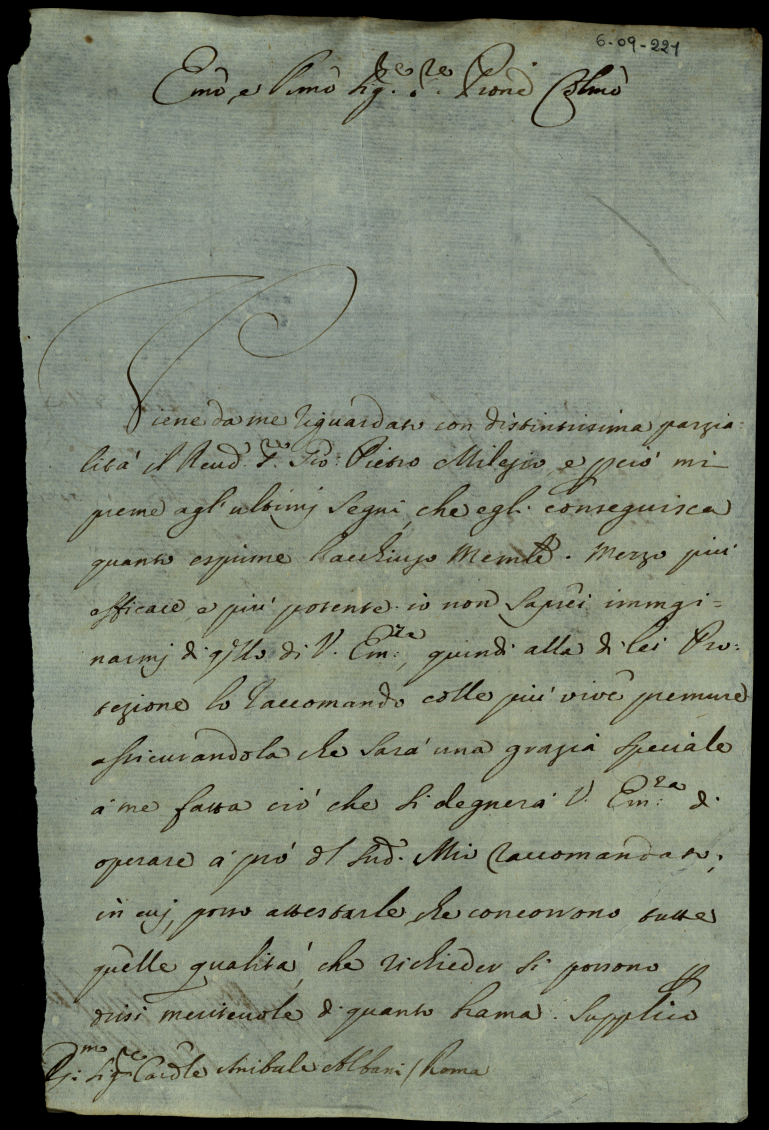 6-09-221
Emõ, e Rmõ Sig.re re Prone Colmõ
Viene da me riguardato con distintissima parzia=
lità il Reud. Gio: Pietro Milesio, e pciò mi
preme agl'ultimj segni, che egli conseguisca
quanto esprime l'acchiuso Memle. Mezzo più
efficace, e più potente io non saprei immagi=
narmj di qllo di V. Em:za, quindi alla di lei Pro=
tezione lo raccomando colle più vive premure
assicurandola che sarà una grazia speciale
à me fatta ciò che si degnerà V. Em:za di
operare à prò dl sud. Mio raccomandato,
in cuj posso attestarle che concorrono tutte
quelle qualità, che richieder si possono p
dirsi meritevole di quanto brama. Supplico
Sig:re Cardle Anibale Albani / Roma